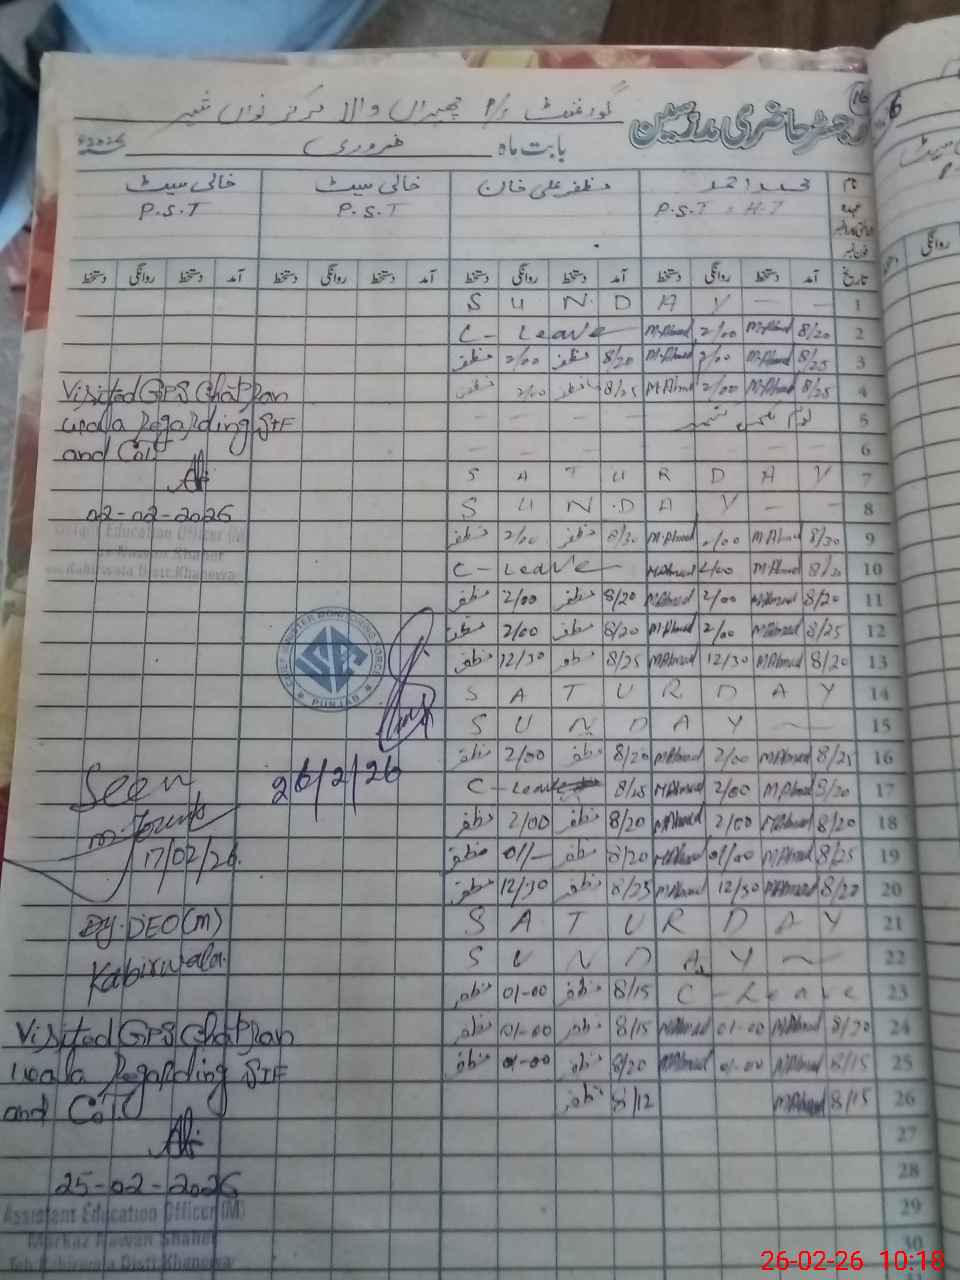 رجسٹر حاضری مدرسین
16
گورنمنٹ p/s چھپراں والا مرکز نواں شہر
بابت ماہ فروری 2026ء
نام محمد احمد مظفر علی خان خالی سیٹ خالی سیٹ
عہدہ P.S.T : H.T P.S.T P.S.T
تاریخ آمد دستخط روانگی دستخط آمد دستخط روانگی دستخط آمد دستخط روانگی دستخط آمد دستخط روانگی دستخط
S U N D A Y — — 1
C - Leave M.Ahmed 2/00 M.Ahmed 8/20 2
مظفر 2/00 مظفر 8/20 M.Ahmed 2/00 M.Ahmed 8/25 3
مظفر 2/00 مظفر 8/25 M.Ahmed 2/00 M.Ahmed 8/25 4
— — — — یوم کشمیر 5
— — — — 6
S A T U R D A Y 7
S U N D A Y — — 8
مظفر 2/00 مظفر 8/30 M.Ahmed 2/00 M.Ahmed 8/30 9
C - Leave M.Ahmed 2/00 M.Ahmed 8/20 10
مظفر 2/00 مظفر 8/20 M.Ahmed 2/00 M.Ahmed 8/20 11
مظفر 2/00 مظفر 8/20 M.Ahmed 2/00 M.Ahmed 8/25 12
مظفر 12/30 مظفر 8/25 M.Ahmed 12/30 M.Ahmed 8/20 13
S A T U R D A Y 14
S U N D A Y — 15
مظفر 2/00 مظفر 8/20 M.Ahmed 2/00 M.Ahmed 8/25 16
C - Leave 8/25 M.Ahmed 2/00 M.Ahmed 8/20 17
مظفر 2/00 مظفر 8/20 M.Ahmed 2/00 M.Ahmed 8/20 18
مظفر 01/- مظفر 8/20 M.Ahmed 01/00 M.Ahmed 8/25 19
مظفر 12/30 مظفر 8/25 M.Ahmed 12/30 M.Ahmed 8/20 20
S A T U R D A Y 21
S U N D A Y — 22
مظفر 01-00 مظفر 8/15 C - Leave 23
مظفر 01-00 مظفر 8/15 M.Ahmed 01-00 M.Ahmed 8/20 24
مظفر 01-00 مظفر 8/20 M.Ahmed 01-00 M.Ahmed 8/15 25
مظفر 8/12 M.Ahmed 8/15 26
27
28
29
30
Visited GPS Chatpran
wala Regarding SIF
and Cot
02-02-2026
Education Officer (M)
Nawan Shaher
Kabirwala Distt.Khanewal
CHIEF MINISTER MONITORING FORCE
PUNJAB
26/2/26
Seen
17/02/26.
Dy. DEO (M)
Kabirwala.
Visited GPS Chatpran
wala Regarding SIF
and Cot
25-02-2026
Assistent Education Officer (M)
Markaz Nawan Shaher
Teh.Kabirwala Distt.Khanewal
6
روانگی
26-02-26 10:18